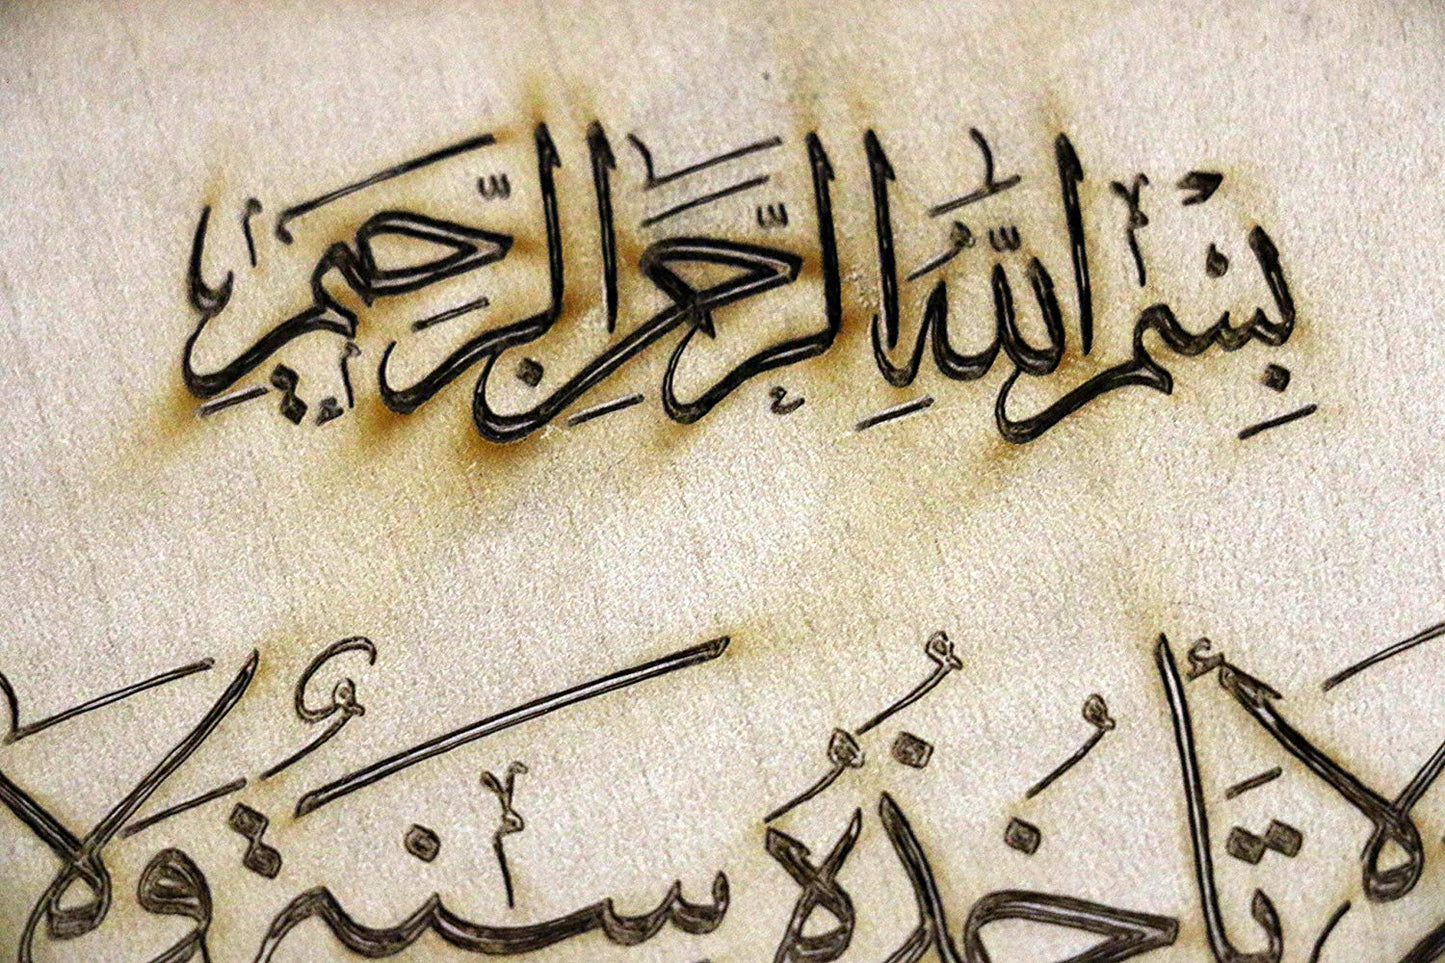 بِسْمِ اللَّهِ الرَّحْمَٰنِ الرَّحِيمِ
لَا تَأْخُذُهُ سِنَةٌ وَلَا